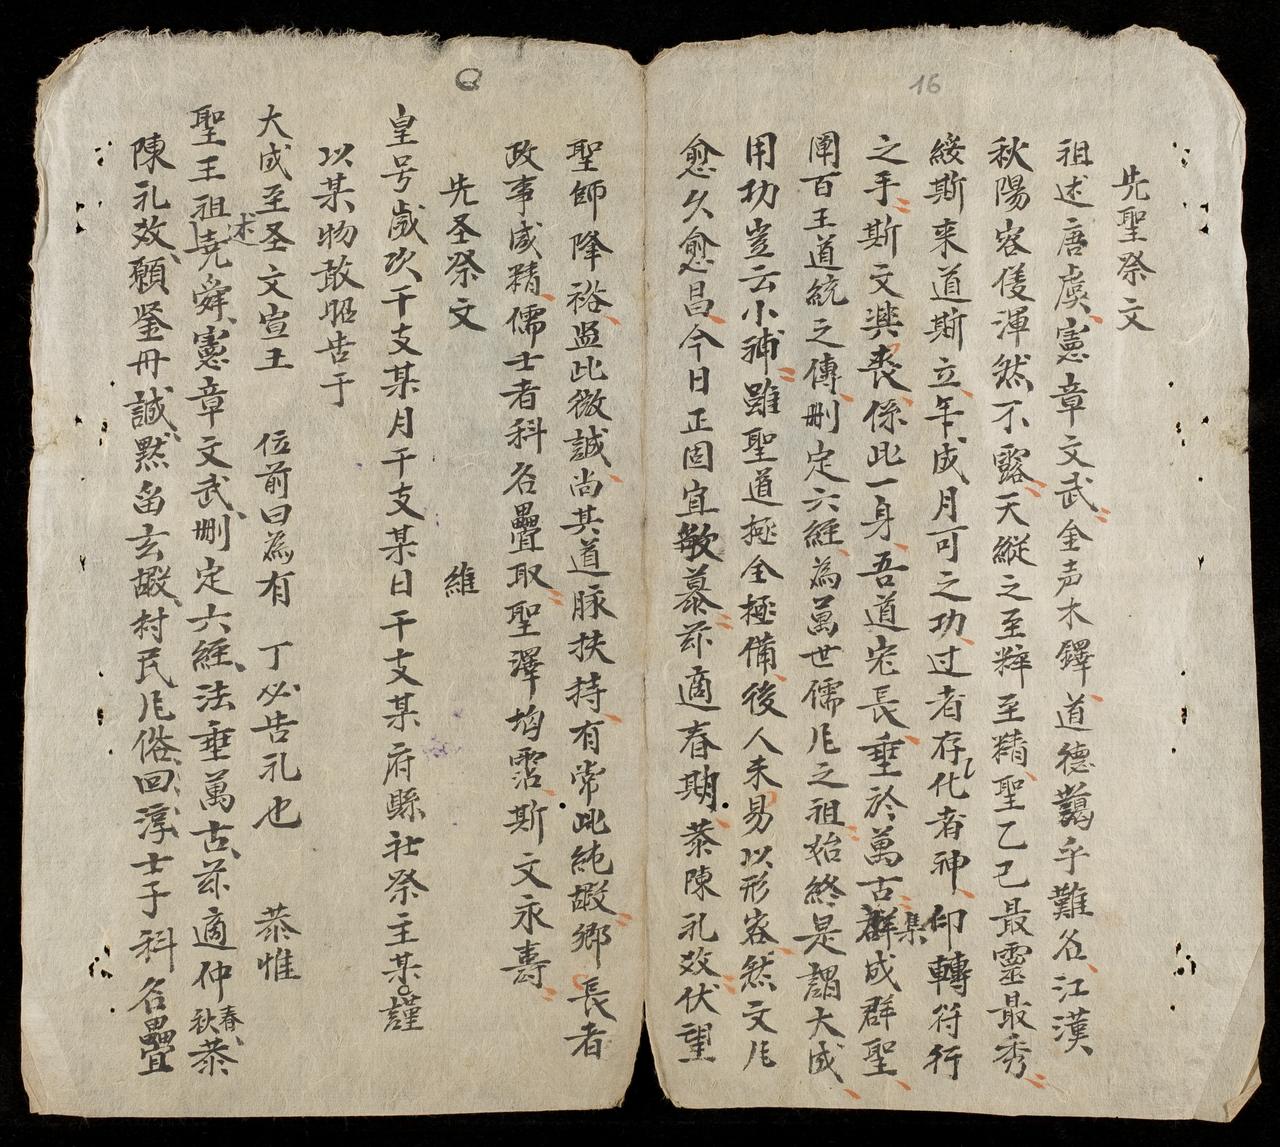 16
先聖祭文
祖述唐虞憲章文武金声木鐸道德藹乎難名江漢
秋陽容僾渾然不露天縱之至粹至精聖乙己最靈最秀
綏斯来道斯立年成月可之功过者存化者神仰轉符行
之手斯文興丧係此一身吾道宠長垂於萬古集群成群聖
闡百王道統之傳删定六經為萬世儒𠃔之祖始終是謂大成
用功豈云小補雖聖道極全極備後人未易以形容然文𠃔
愈久愈昌今日正固宜敬慕茲適春期恭陳礼效伏望
聖師降裕監此微誠尚其道脉扶持有常此純嘏鄉長者
政事咸精儒士者科名疊取聖澤均霑斯文永壽
先圣祭文 維
皇号歲次干支某月干支某日干支某府縣社祭主某謹
以某物敢昭告于
大成至圣文宣王 位前曰為有 丁必告礼也 恭惟
聖王祖述尭舜憲章文武删定六經法垂萬古茲適仲春秋恭
陳礼效願鉴丹誠黙畱玄嘏村民𠃔俗回淳士子科名疊